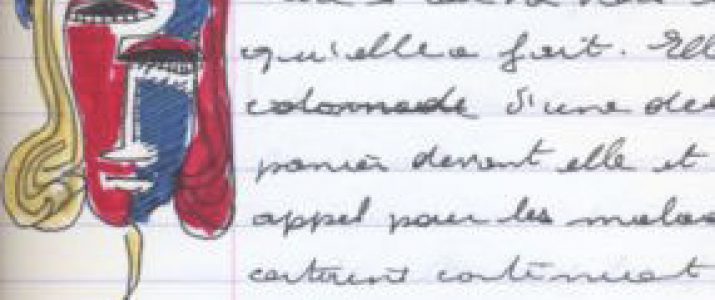 qu'elle a fait. Ell
colonnade d'une des
panier devant elle et
appel pour les malad
continuent